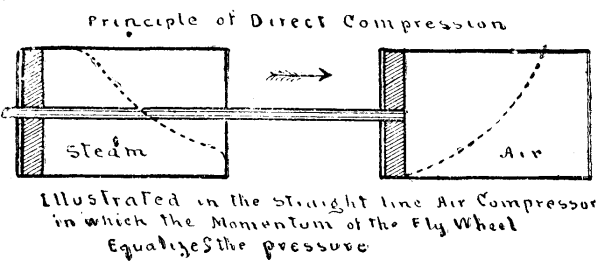 Principle of Direct Compression
Steam
Air
Illustrated in the straight line Air Compressor
in which the Momentum of the Fly Wheel
Equalizes the pressure